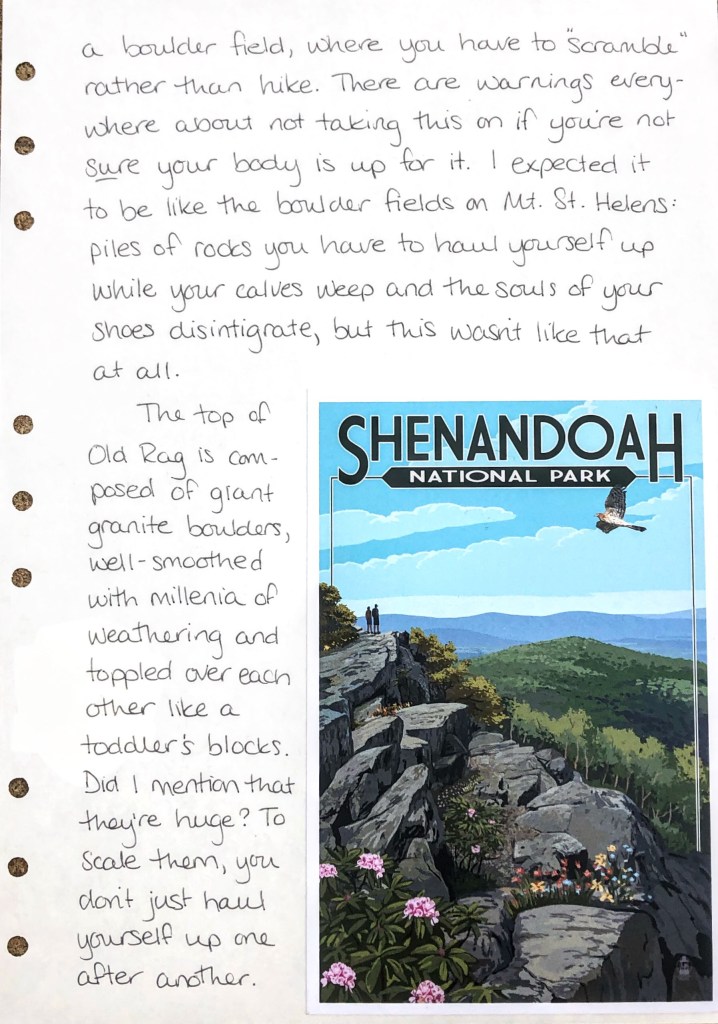 a boulder field, where you have to "scramble"
rather than hike. There are warnings every-
where about not taking this on if you're not
sure your body is up for it. I expected it
to be like the boulder fields on Mt. St. Helens:
piles of rocks you have to haul yourself up
while your calves weep and the souls of your
shoes disintigrate, but this wasn't like that
at all.
The top of
Old Rag is com-
posed of giant
granite boulders,
well-smoothed
with millenia of
weathering and
toppled over each
other like a
toddler's blocks.
Did I mention that
they're huge? To
scale them, you
don't just haul
yourself up one
after another.
SHENANDOAH
NATIONAL PARK